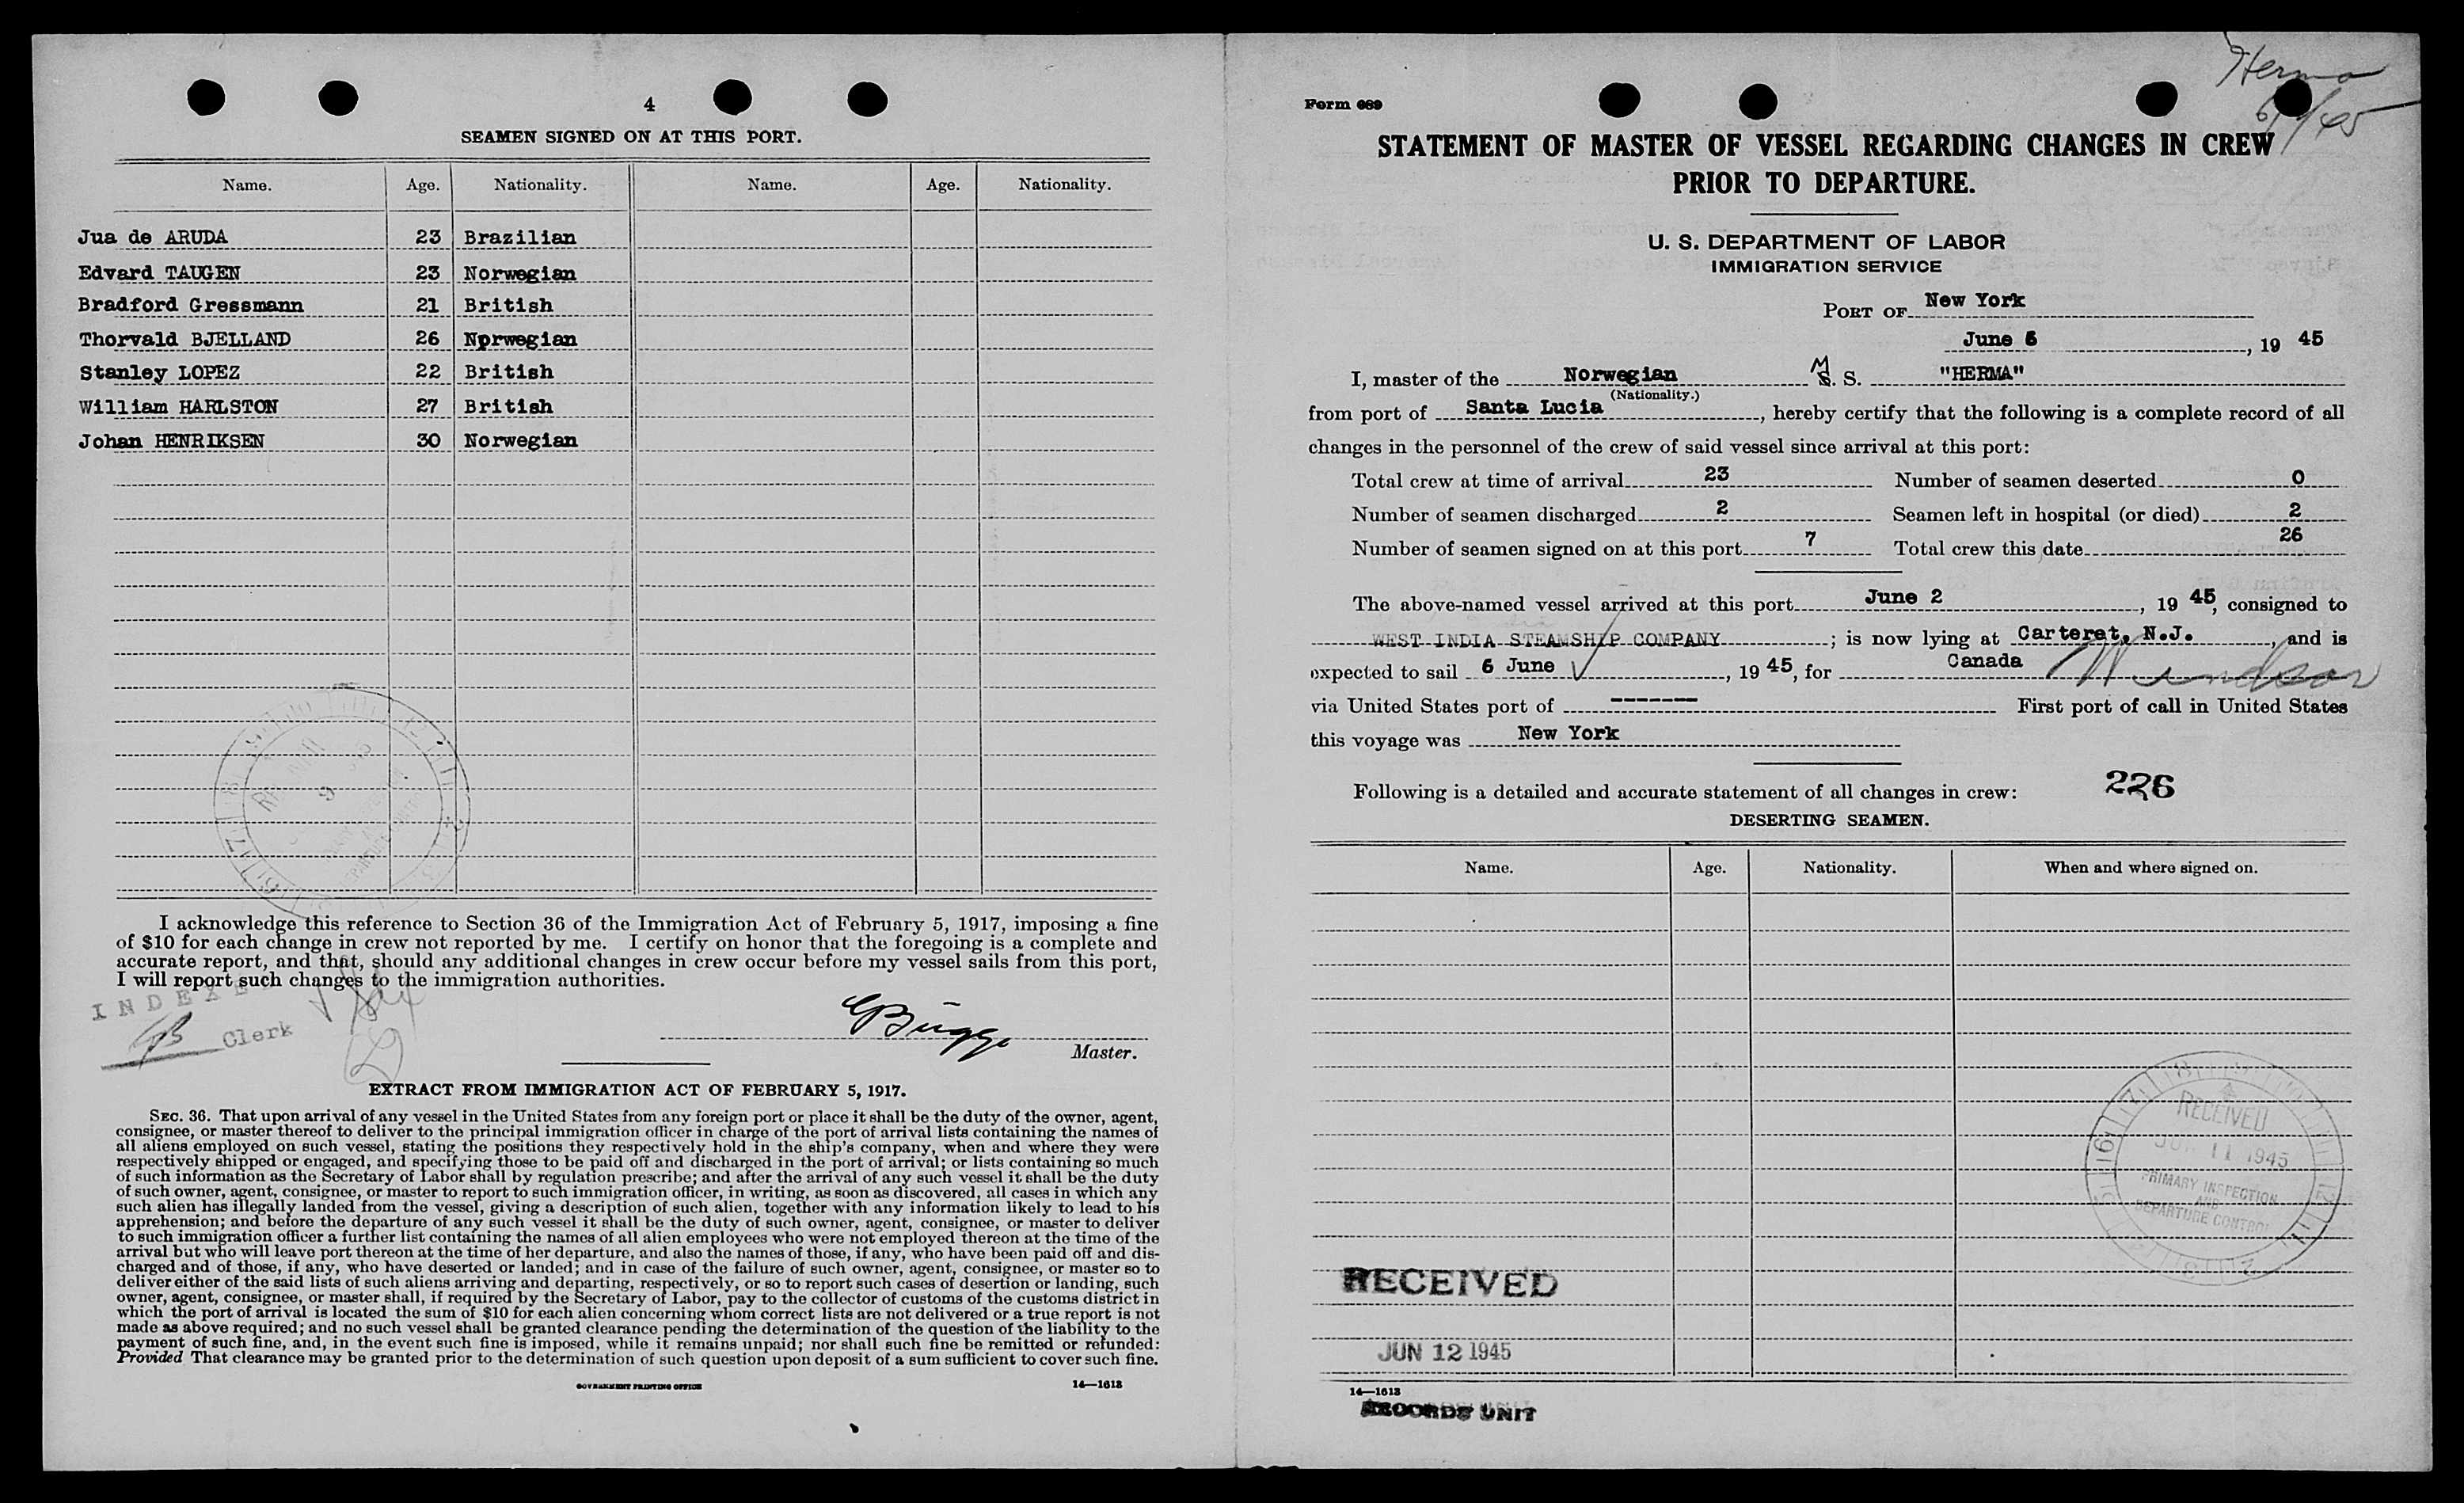 4
SEAMEN SIGNED ON AT THIS PORT.
Name. Age. Nationality. Name. Age. Nationality.
Jua de ARUDA 23 Brazilian
Edvard TAUGEN 23 Norwegian
Bradford Gressmann 21 British
Thorvald BJELLAND 26 Norwegian
Stanley LOPEZ 22 British
William HARLSTON 27 British
Johan HENRIKSEN 30 Norwegian
I acknowledge this reference to Section 36 of the Immigration Act of February 5, 1917, imposing a fine
of $10 for each change in crew not reported by me. I certify on honor that the foregoing is a complete and
accurate report, and that, should any additional changes in crew occur before my vessel sails from this port,
I will report such changes to the immigration authorities.
INDEXED
Clerk
Master.
EXTRACT FROM IMMIGRATION ACT OF FEBRUARY 5, 1917.
SEC. 36. That upon arrival of any vessel in the United States from any foreign port or place it shall be the duty of the owner, agent,
consignee, or master thereof to deliver to the principal immigration officer in charge of the port of arrival lists containing the names of
all aliens employed on such vessel, stating the positions they respectively hold in the ship's company, when and where they were
respectively shipped or engaged, and specifying those to be paid off and discharged in the port of arrival; or lists containing so much
of such information as the Secretary of Labor shall by regulation prescribe; and after the arrival of any such vessel it shall be the duty
of such owner, agent, consignee, or master to report to such immigration officer, in writing, as soon as discovered, all cases in which any
such alien has illegally landed from the vessel, giving a description of such alien, together with any information likely to lead to his
apprehension; and before the departure of any such vessel it shall be the duty of such owner, agent, consignee, or master to deliver
to such immigration officer a further list containing the names of all alien employees who were not employed thereon at the time of the
arrival but who will leave port thereon at the time of her departure, and also the names of those, if any, who have been paid off and dis-
charged and of those, if any, who have deserted or landed; and in case of the failure of such owner, agent, consignee, or master so to
deliver either of the said lists of such aliens arriving and departing, respectively, or so to report such cases of desertion or landing, such
owner, agent, consignee, or master shall, if required by the Secretary of Labor, pay to the collector of customs of the customs district in
which the port of arrival is located the sum of $10 for each alien concerning whom correct lists are not delivered or a true report is not
made as above required; and no such vessel shall be granted clearance pending the determination of the question of the liability to the
payment of such fine, and, in the event such fine is imposed, while it remains unpaid; nor shall such fine be remitted or refunded:
Provided That clearance may be granted prior to the determination of such question upon deposit of a sum sufficient to cover such fine.
GOVERNMENT PRINTING OFFICE 14—1613
Herma
Form 689
STATEMENT OF MASTER OF VESSEL REGARDING CHANGES IN CREW
PRIOR TO DEPARTURE.
U. S. DEPARTMENT OF LABOR
IMMIGRATION SERVICE
PORT OF New York
June 6, 19 45
I, master of the Norwegian M S. S. "HERMA"
(Nationality.)
from port of Santa Lucia, hereby certify that the following is a complete record of all
changes in the personnel of the crew of said vessel since arrival at this port:
Total crew at time of arrival 23 Number of seamen deserted 0
Number of seamen discharged 2 Seamen left in hospital (or died) 2
Number of seamen signed on at this port 7 Total crew this date 26
The above-named vessel arrived at this port June 2, 19 45, consigned to
WEST INDIA STEAMSHIP COMPANY; is now lying at Carteret, N.J., and is
expected to sail 6 June, 19 45, for Canada Windsor
via United States port of ------- First port of call in United States
this voyage was New York
Following is a detailed and accurate statement of all changes in crew: 226
DESERTING SEAMEN.
Name. Age. Nationality. When and where signed on.
RECEIVED
JUN 11 1945
PRIMARY INSPECTION
AND
DEPARTURE CONTROL
RECEIVED
JUN 12 1945
14—1613
RECORDS UNIT